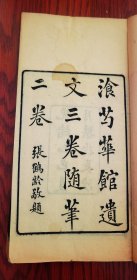 湌芍華館遺
文三卷随筆
二卷
張鶴齡敬題